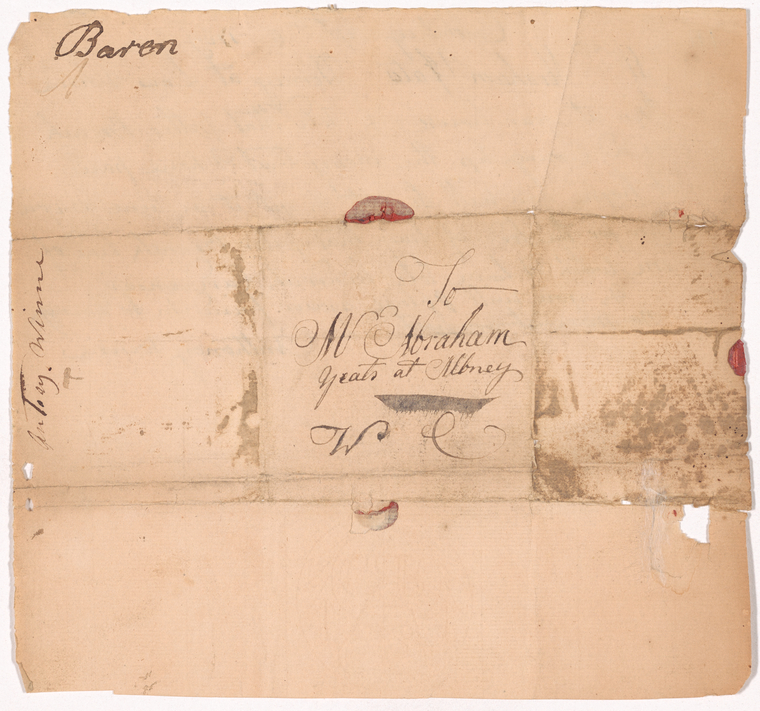 Baren
To
Mr Abraham
Yeats at Albney
W C
Winne